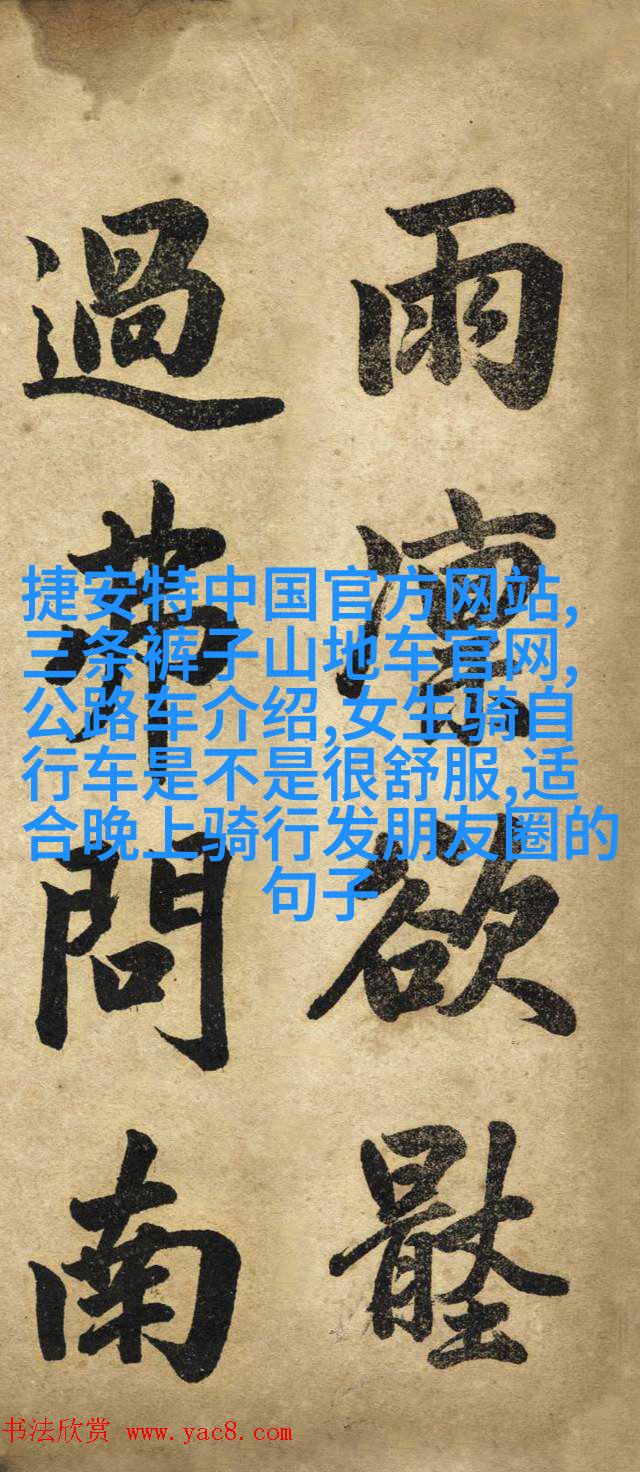 雨欲
過問南
捷安特中国官方网站,
三条裤子山地车官网,
公路车介绍,女生骑自
行车是不是很舒服,适
合晚上骑行发朋友圈的
句子
书法欣赏 www.yac8.com